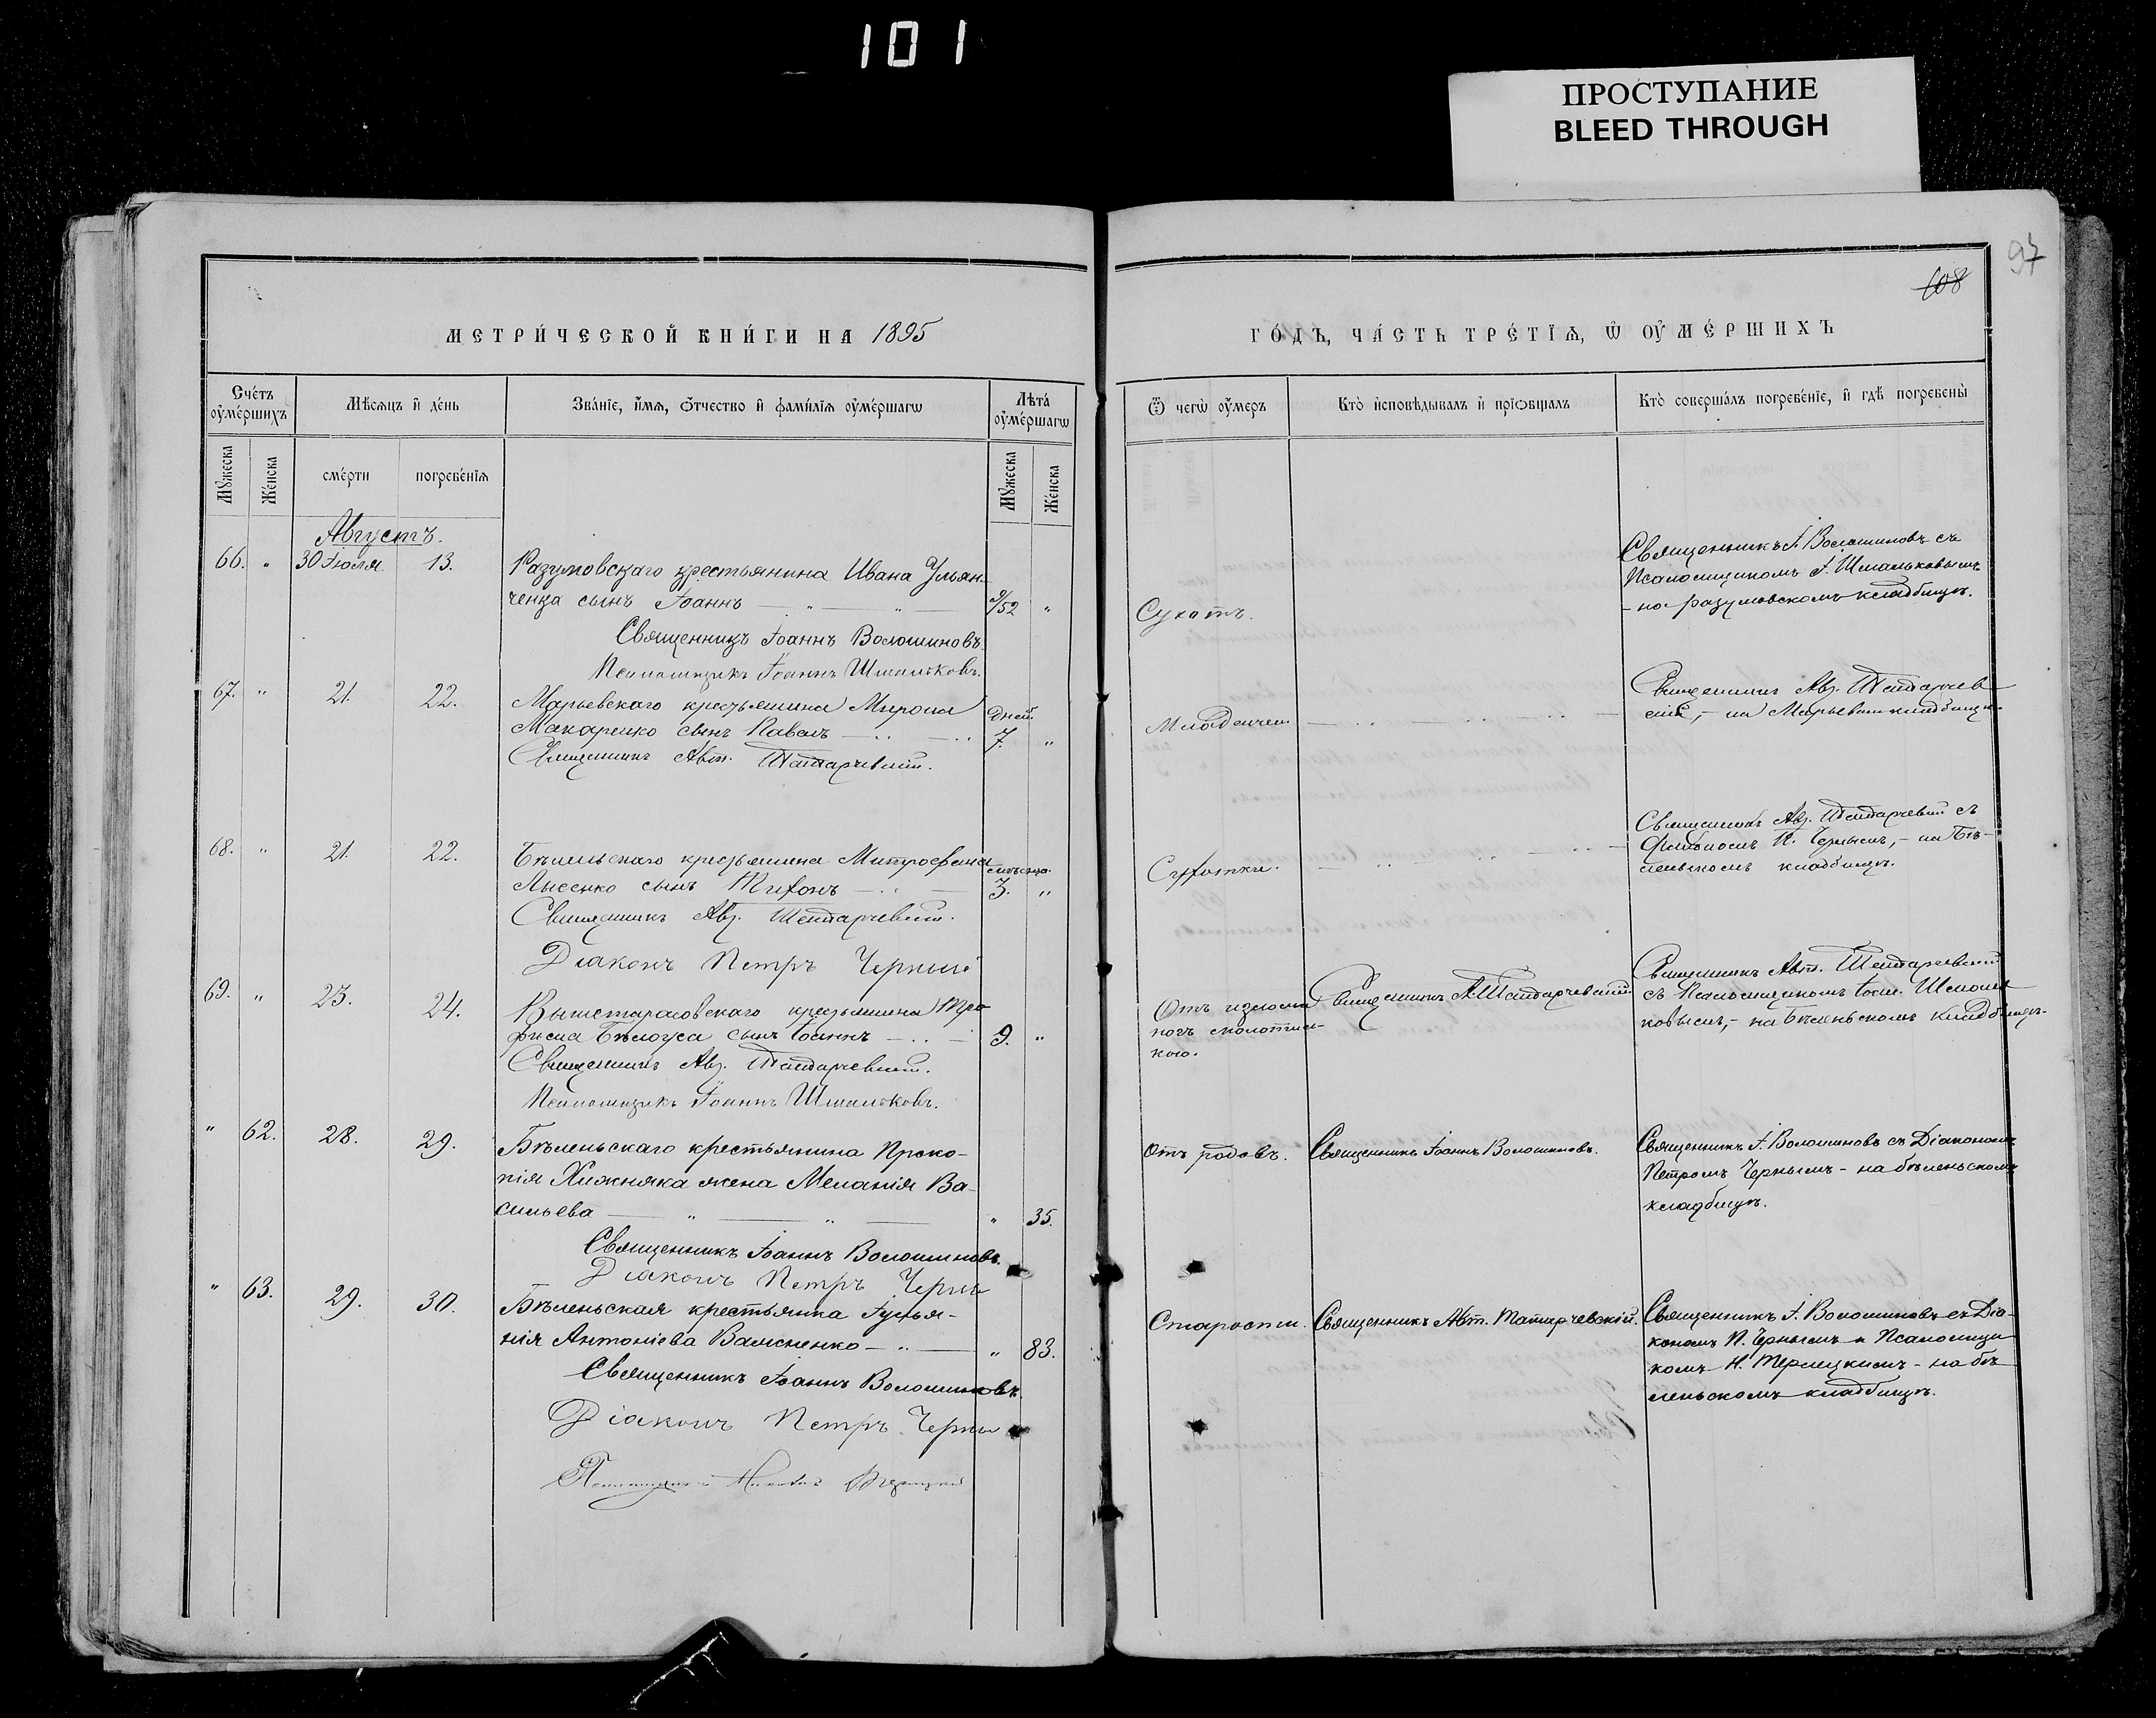 101
ПРОСТУПАНИЕ
BLEED THROUGH
97
108
МЕТРИ́ЧЕСКОЙ КНИ́ГИ НА 1895
ГО́ДЪ, ЧА́СТЬ ТРЕ́ТІѦ, Ѡ҆ ОУ҆МЕ́РШИХЪ
Сче́тъ оу҆ме́ршихъ
Мѣсѧцъ и҆ де́нь
Зва́нїе, и҆́мѧ, ѻ҆́тчество и҆ фами́лїѧ оу҆ме́ршагѡ
Лѣта̀ оу҆ме́ршагѡ
Ѿ чегѡ̀ оу҆́меръ
Кто̀ и҆сповѣ́дывалъ и҆ прїѡбща́лъ
Кто̀ соверша́лъ погребе́нїе, и҆ гдѣ̀ погребены̀
Мꙋ́жеска
Же́нска
сме́рти
погребе́нїѧ
Мꙋ́жеска
Же́нска
Августъ.
66. " 30 Іюля. 13.
Разумовскаго крестьянина Ивана Ульян-
ченка сынъ Іоаннъ — " — " — 9/52 "
Священникъ Іоаннъ Волошиновъ
Псаломщикъ Іоаннъ Шмальковъ.
Сухотъ.
Священникъ І. Волошиновъ съ
Псаломщикомъ І. Шмальковымъ
- на разумовскомъ кладбищѣ.
67. " 21. 22.
Марьевскаго крестьянина Мирона
Макаренко сынъ Павелъ — .. — .. Дней 7. "
Священникъ Авт. Татарчевскій.
Младенчест
Священникъ Авт. Татарчев-
скій, - на Марьевском кладбищѣ.
68. " 21. 22.
Бѣленьскаго крестьянина Митрофана
Лысенко сынъ Тихонъ — .. — мѣсяца. 3. "
Священникъ Авт. Татарчевскій.
Діаконъ Петръ Черный
Сухотки.
Священникъ Авт. Татарчевскій съ
Діакономъ П. Чернымъ, - на Бѣ-
леньскомъ кладбищѣ.
69. " 23. 24.
Вышетарасовскаго крестьянина Тро
фима Бѣлоуса сынъ Іоаннъ — .. — 9. "
Священникъ Авт. Татарчевскій.
Псаломщикъ Іоаннъ Шмальковъ.
Отъ излома
ногъ молотил-
кою.
Священникъ А. Татарчевскій
Священникъ Авт. Татарчевскій
съ Псаломщикомъ Іоан. Шмаль
ковымъ, - на Бѣленьскомъ кладбищѣ.
" 62. 28. 29.
Бѣленьскаго крестьянина Проко-
пія Хижняка жена Меланія Ва-
сильева — " — " — " 35.
Священникъ Іоаннъ Волошиновъ.
Діаконъ Петръ Черны
Отъ родовъ.
Священникъ Іоаннъ Волошиновъ.
Священникъ І. Волошиновъ съ Діакономъ
Петромъ Чернымъ - на бѣленьскомъ
кладбищѣ.
" 63. 29. 30.
Бѣленьская крестьянка Іулья-
нія Антоніева — .. — " 83.
Священникъ Іоаннъ Волошиновъ.
Діаконъ Петръ Черны
Старости.
Священникъ Авт. Татарчевскій.
Священникъ І. Волошиновъ съ Діа-
кономъ П. Чернымъ и Псаломщи
комъ Н. Терлецкимъ - на бѣ
леньскомъ кладбищѣ.